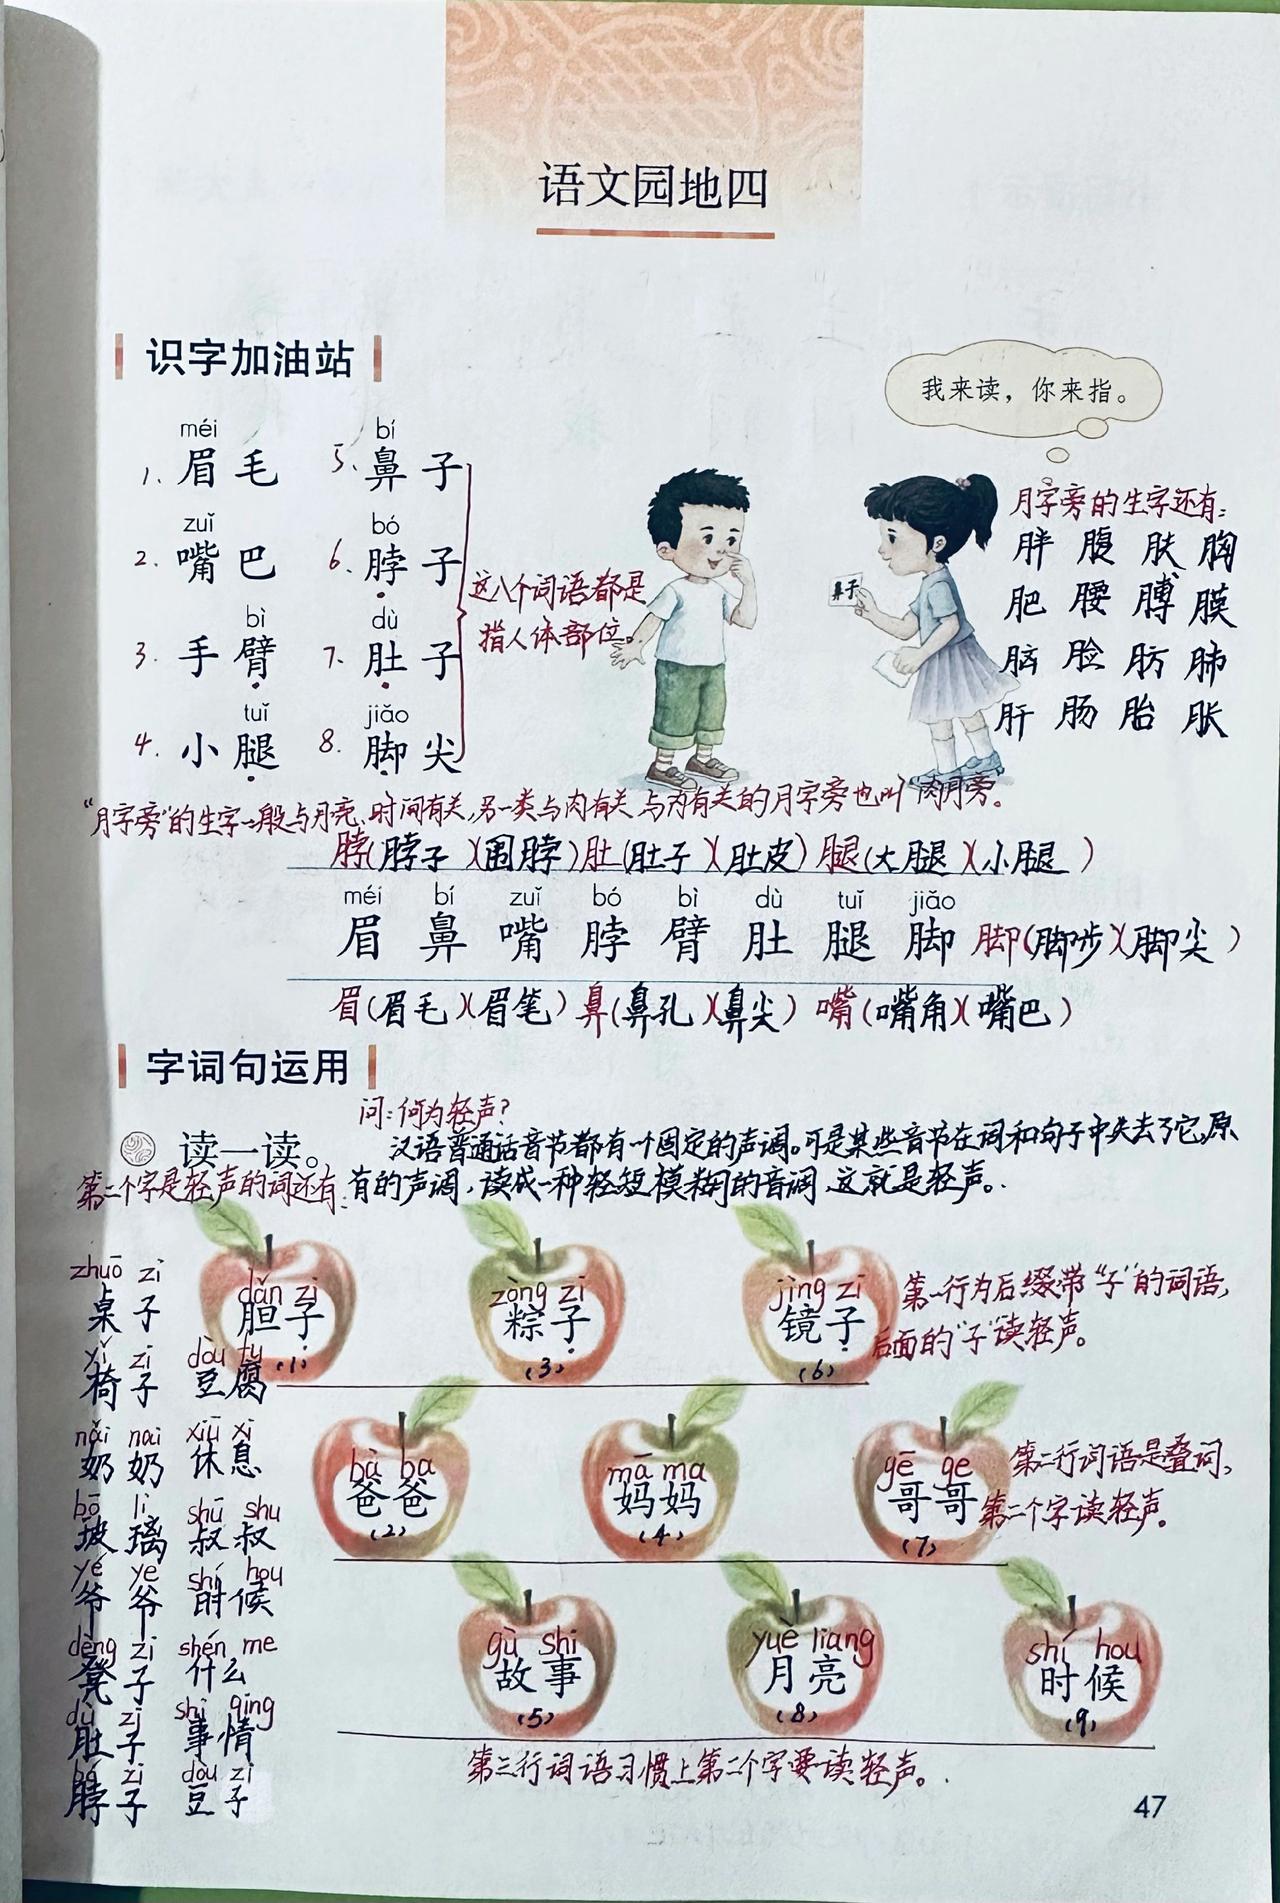 语文园地四
识字加油站
我来读，你来指。
méi bí
1. 眉毛 5、鼻子
zuǐ bó
2. 嘴巴 6、脖子
bì dù
3. 手臂 7. 肚子
tuǐ jiǎo
4. 小腿 8. 脚尖
这八个词语都是
指人体部位。
鼻子
月字旁的生字还有:
胖 腹 肤 胸
肥 腰 膊 膜
脑 脸 肪 肺
肝 肠 胎 胀
“月字旁”的生字一般与月亮、时间有关,另一类与肉有关,与肉有关的月字旁也叫“肉月旁。
脖(脖子)(围脖)肚(肚子)(肚皮)腿(大腿)(小腿)
méi bí zuǐ bó bì dù tuǐ jiǎo
眉 鼻 嘴 脖 臂 肚 腿 脚 脚(脚步)(脚尖)
眉(眉毛)(眉笔)鼻(鼻孔)(鼻尖)嘴(嘴角)(嘴巴)
字词句运用
问:何为轻声?
读一读。
汉语普通话音节都有一个固定的声调。可是某些音节在词和句子中失去了它原
有的声调,读成一种轻短模糊的音调,这就是轻声。
第二个字是轻声的词还有:
zhuō zi
桌子
yǐ zi dòu fu
椅子 豆腐
nǎi nai xiū xi
奶奶 休息
bō li shū shu
玻璃 叔叔
yé ye shí hou
爷爷 时候
dèng zi shén me
凳子 什么
dù zi shì qing
肚子 事情
bó zi dòu zi
脖子 豆子
dǎn zi zòng zi jìng zi
胆子 粽子 镜子
(1) (3) (6)
第一行为后缀带“子”的词语,
后面的“子”读轻声。
bà ba mā ma gē ge
爸爸 妈妈 哥哥
(2) (4) (7)
第二行词语是叠词,
第二个字读轻声。
gù shi yuè liang shí hou
故事 月亮 时候
(5) (8) (9)
第三行词语习惯上第二个字要读轻声。
47